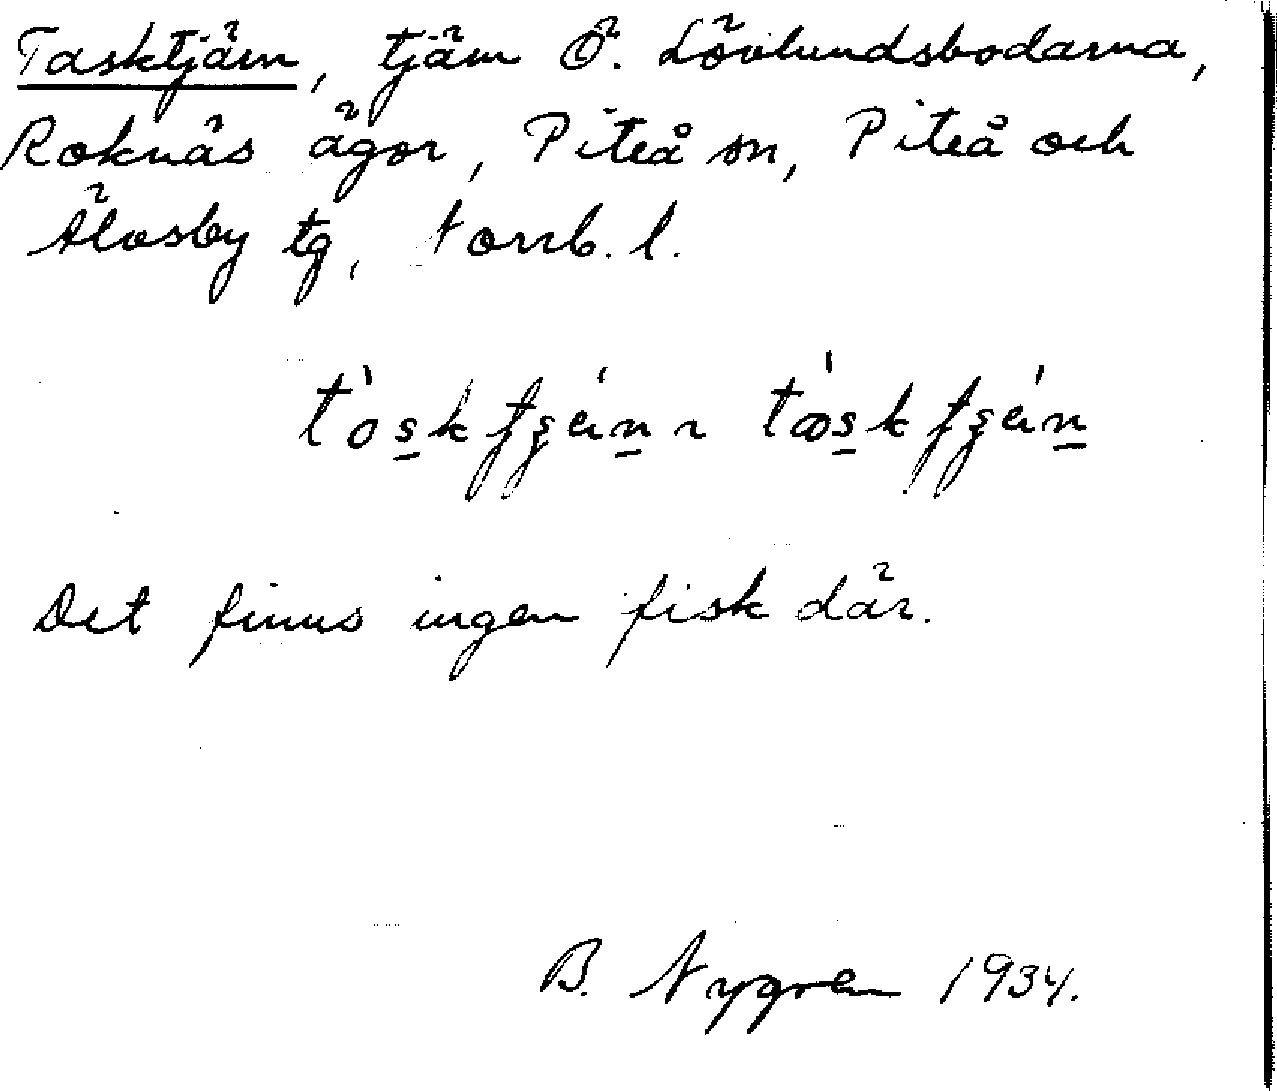 Tasktjärn, tjärn Ö. Lövlundsbodarna,
Roknäs ägor, Piteå sn, Piteå och
Älvsby tg, Norrb. l.
Det finns ingen fisk där.
B. Nygren 1934.